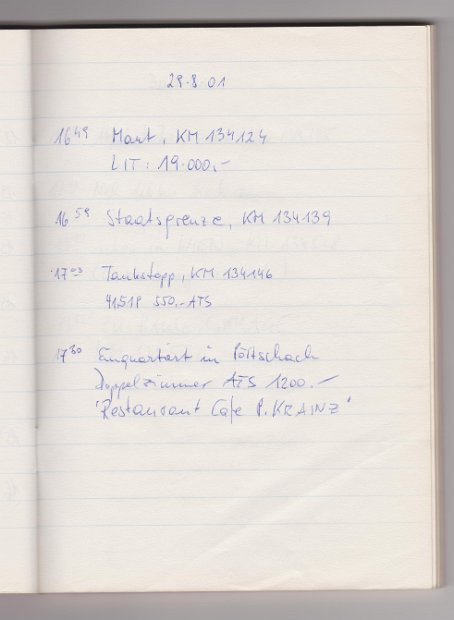 29.8.01
16 49 Maut, KM 134124
LIT: 19.000,-
16 59 Staatsgrenze, KM 134139
17 03 Tankstopp, KM 134146
550,- ATS
17 30 Einquartiert in Pörtschach
Doppelzimmer ATS 1200.-
"Restaurant Cafe P. KRAINZ"